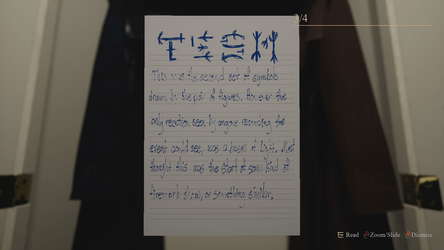 /4
This was the second set of symbols
drawn by the pair of figures. However the
only reaction seen by anyone witnessing the
event could see, was a burst of light. Most
thought this was the start of some kind of
firework show, or something similar.
Read Zoom/Slide Dismiss